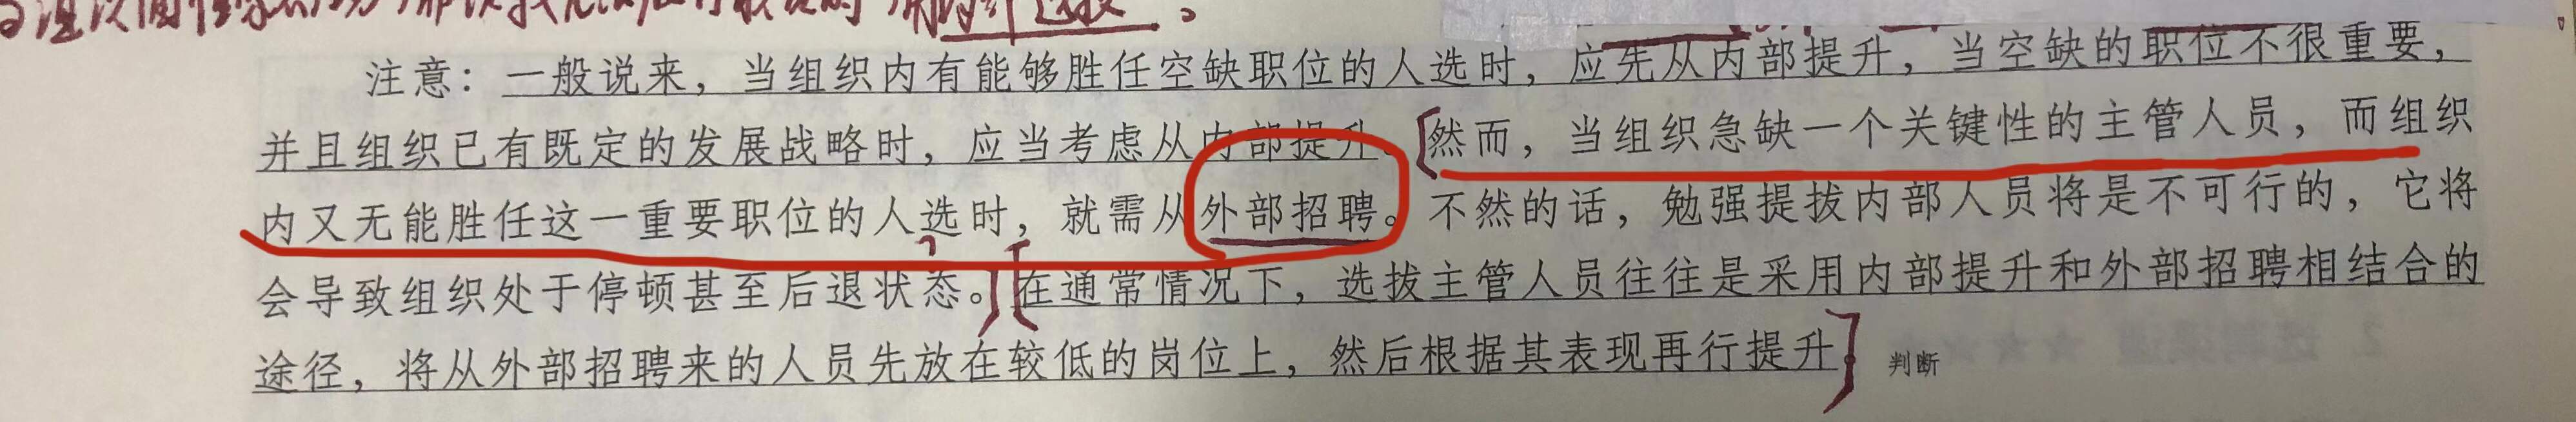 注意：一般说来，当组织内有能够胜任空缺职位的人选时，应先从内部提升，当空缺的职位不很重要，
并且组织已有既定的发展战略时，应当考虑从内部提升。然而，当组织急缺一个关键性的主管人员，而组织
内又无能胜任这一重要职位的人选时，就需从外部招聘。不然的话，勉强提拔内部人员将是不可行的，它将
会导致组织处于停顿甚至后退状态。在通常情况下，选拔主管人员往往是采用内部提升和外部招聘相结合的
途径，将从外部招聘来的人员先放在较低的岗位上，然后根据其表现再行提升。 判断